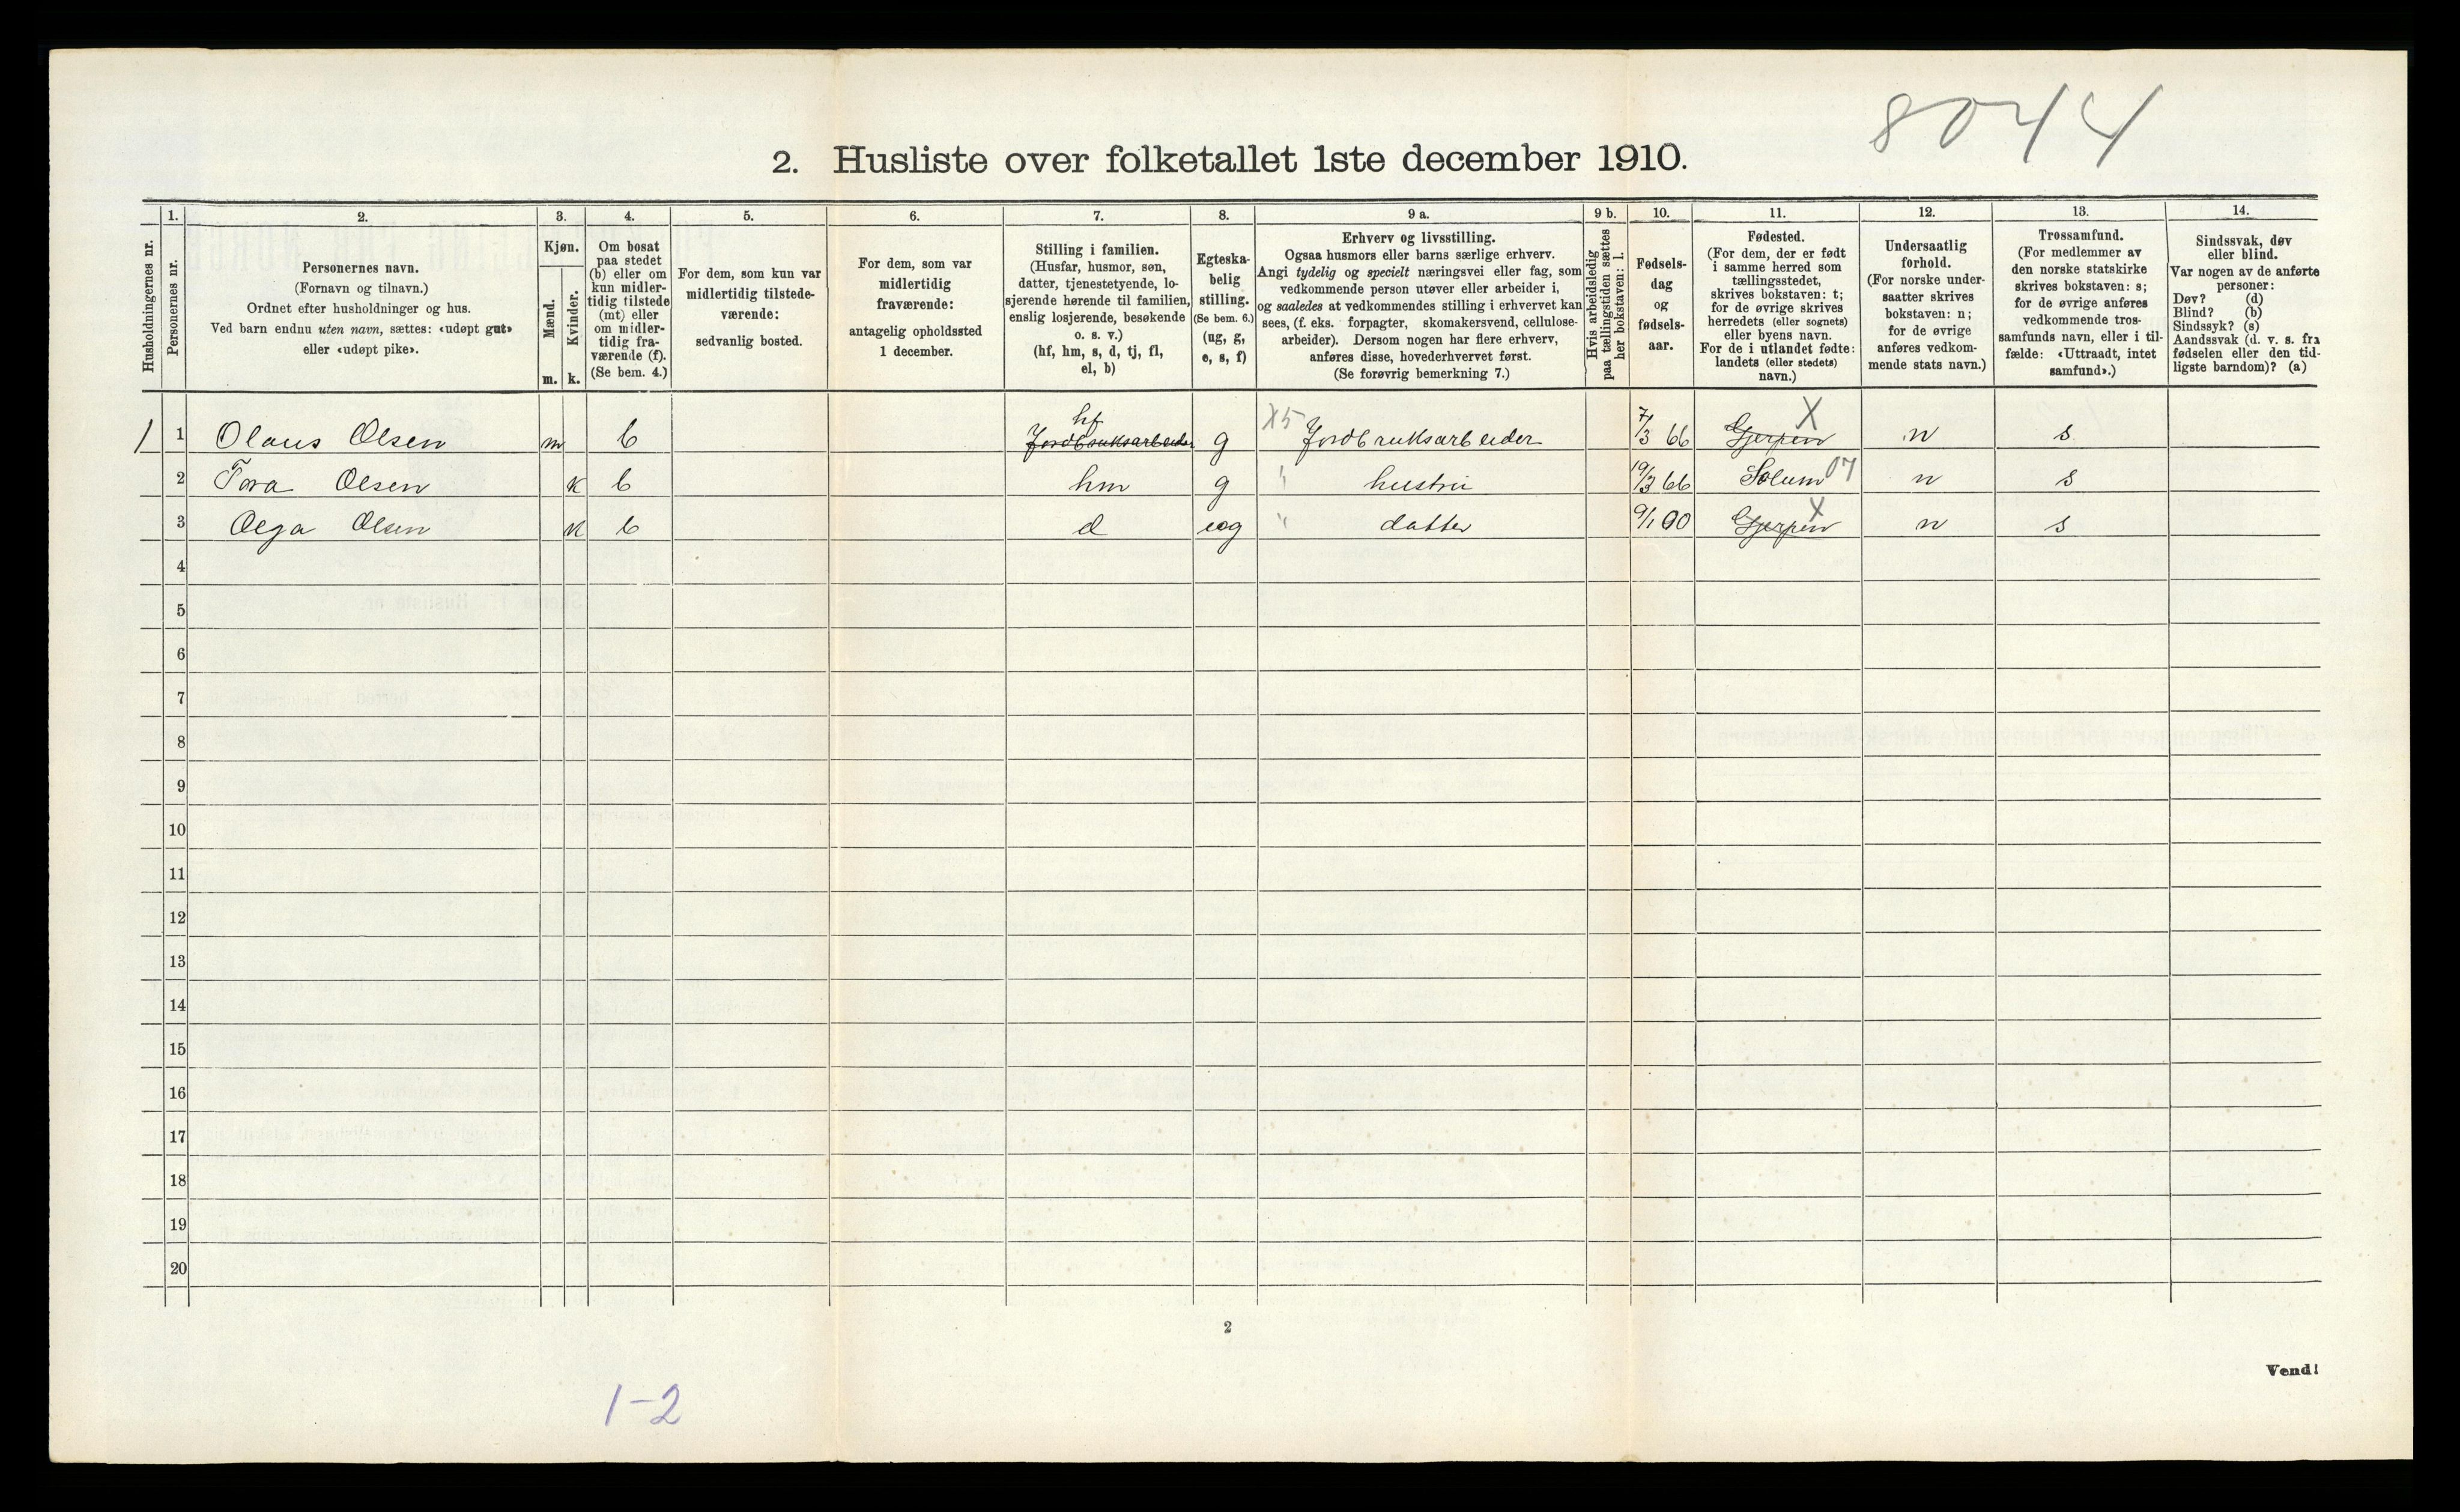 8044
2. Husliste over folketallet 1ste december 1910.
Husholdningernes nr.
1.
Personernes nr.
2.
Personernes navn.
(Fornavn og tilnavn.)
Ordnet efter husholdninger og hus.
Ved barn endnu uten navn, sættes: «udøpt gut»
eller «udøpt pike».
3.
Kjøn.
Mænd.
m.
Kvinder.
k.
4.
Om bosat
paa stedet
(b) eller om
kun midler-
tidig tilstede
(mt) eller
om midler-
tidig fra-
værende (f).
(Se bem. 4.)
5.
For dem, som kun var
midlertidig tilstede-
værende:
sedvanlig bosted.
6.
For dem, som var
midlertidig
fraværende:
antagelig opholdssted
1 december.
7.
Stilling i familien.
(Husfar, husmor, søn,
datter, tjenestetyende, lo-
sjerende hørende til familien,
enslig losjerende, besøkende
o. s. v.)
(hf, hm, s, d, tj, fl,
el, b)
8.
Egteska-
belig
stilling.
(Se bem. 6.)
(ug, g,
e, s, f)
9 a.
Erhverv og livsstilling.
Ogsaa husmors eller barns særlige erhverv.
Angi tydelig og specielt næringsvei eller fag, som
vedkommende person utøver eller arbeider i,
og saaledes at vedkommendes stilling i erhvervet kan
sees, (f. eks. forpagter, skomakersvend, cellulose-
arbeider). Dersom nogen har flere erhverv,
anføres disse, hovederhvervet først.
(Se forøvrig bemerkning 7.)
9 b.
Hvis arbeidsledig
paa tællingstiden sættes
her bokstaven: l.
10.
Fødsels-
dag
og
fødsels-
aar.
11.
Fødested.
(For dem, der er født
i samme herred som
tællingsstedet,
skrives bokstaven: t;
for de øvrige skrives
herredets (eller sognets)
eller byens navn.
For de i utlandet fødte:
landets (eller stedets)
navn.)
12.
Undersaatlig
forhold.
(For norske under-
saatter skrives
bokstaven: n;
for de øvrige
anføres vedkom-
mende stats navn.)
13.
Trossamfund.
(For medlemmer av
den norske statskirke
skrives bokstaven: s;
for de øvrige anføres
vedkommende tros-
samfunds navn, eller i til-
fælde: «Uttraadt, intet
samfund».)
14.
Sindssvak, døv
eller blind.
Var nogen av de anførte
personer:
Døv? (d)
Blind? (b)
Sindssyk? (s)
Aandssvak (d. v. s. fra
fødselen eller den tid-
ligste barndom)? (a)
1 1 Olaus Olsen m b Jordbruksarbeider hf g X5 Jordbruksarbeider 7/3 66 Gjerpen X n s
2 Tora Olsen k b hm g " hustru 19/3 66 Solum 07 n s
3 Olga Olsen k b d ug " datter 9/1 00 Gjerpen X n s
4
5
6
7
8
9
10
11
12
13
14
15
16
17
18
19
20
2
Vend!
1-2